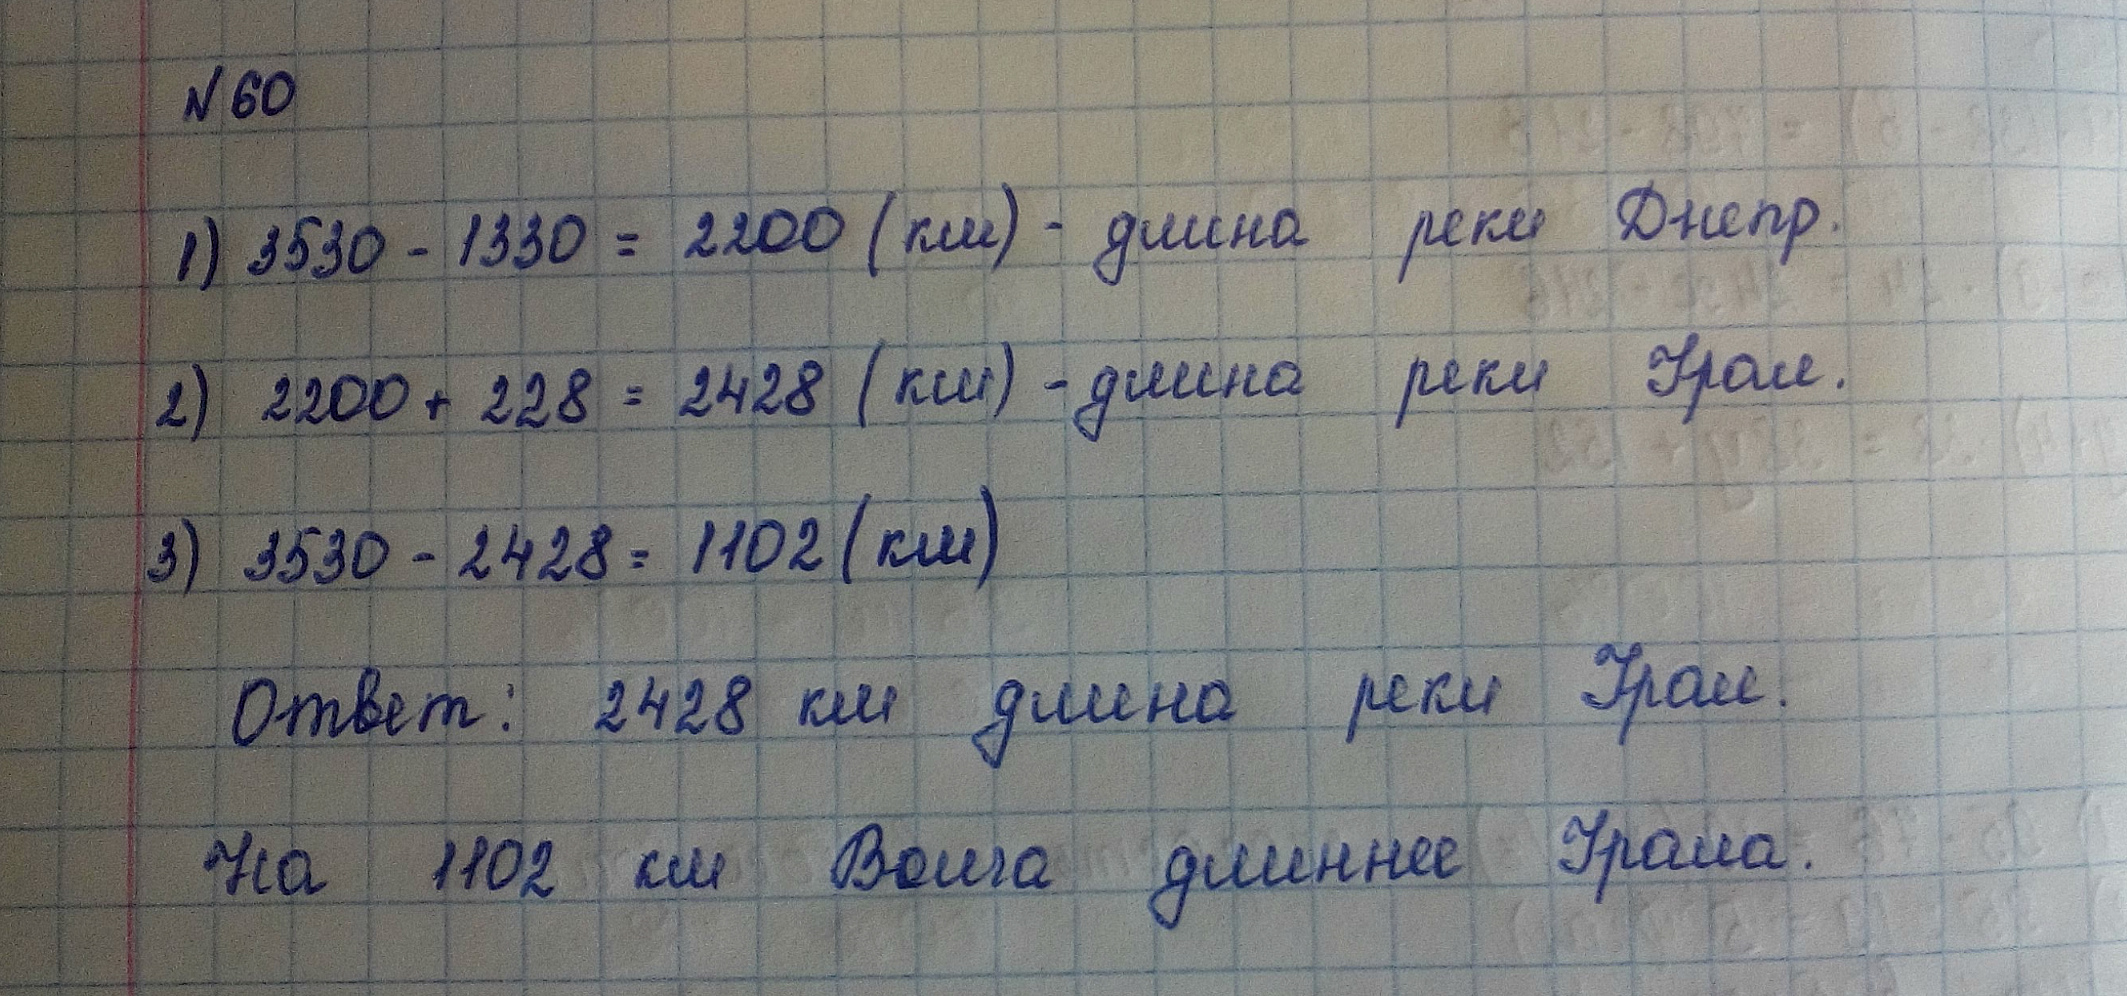 №60
1) 3530 - 1330 = 2200 (км) - длина реки Днепр.
2) 2200 + 228 = 2428 (км) - длина реки Урал.
3) 3530 - 2428 = 1102 (км)
Ответ: 2428 км длина реки Урал.
На 1102 км Волга длиннее Урала.